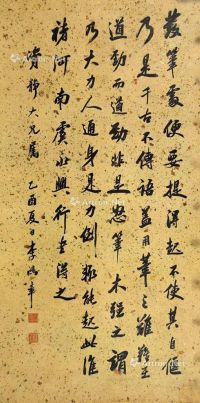 發筆處便要提得起不使其自偃
乃是千古不傳語蓋用筆之難難在
遒勁而遒勁非是怒筆木强之謂
乃大力人通身是力倒輒能起此惟
褚河南虞永興行書得之
靜大兄屬 乙酉夏日李鴻章